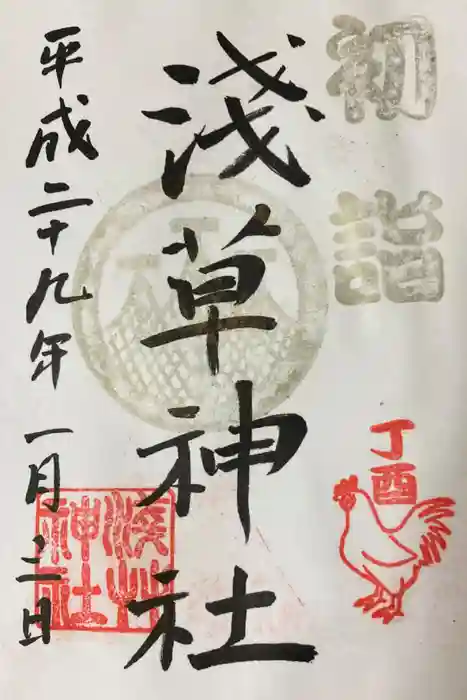 初詣
丁酉
淺草神社
淺草神社
平成二十九年一月三日